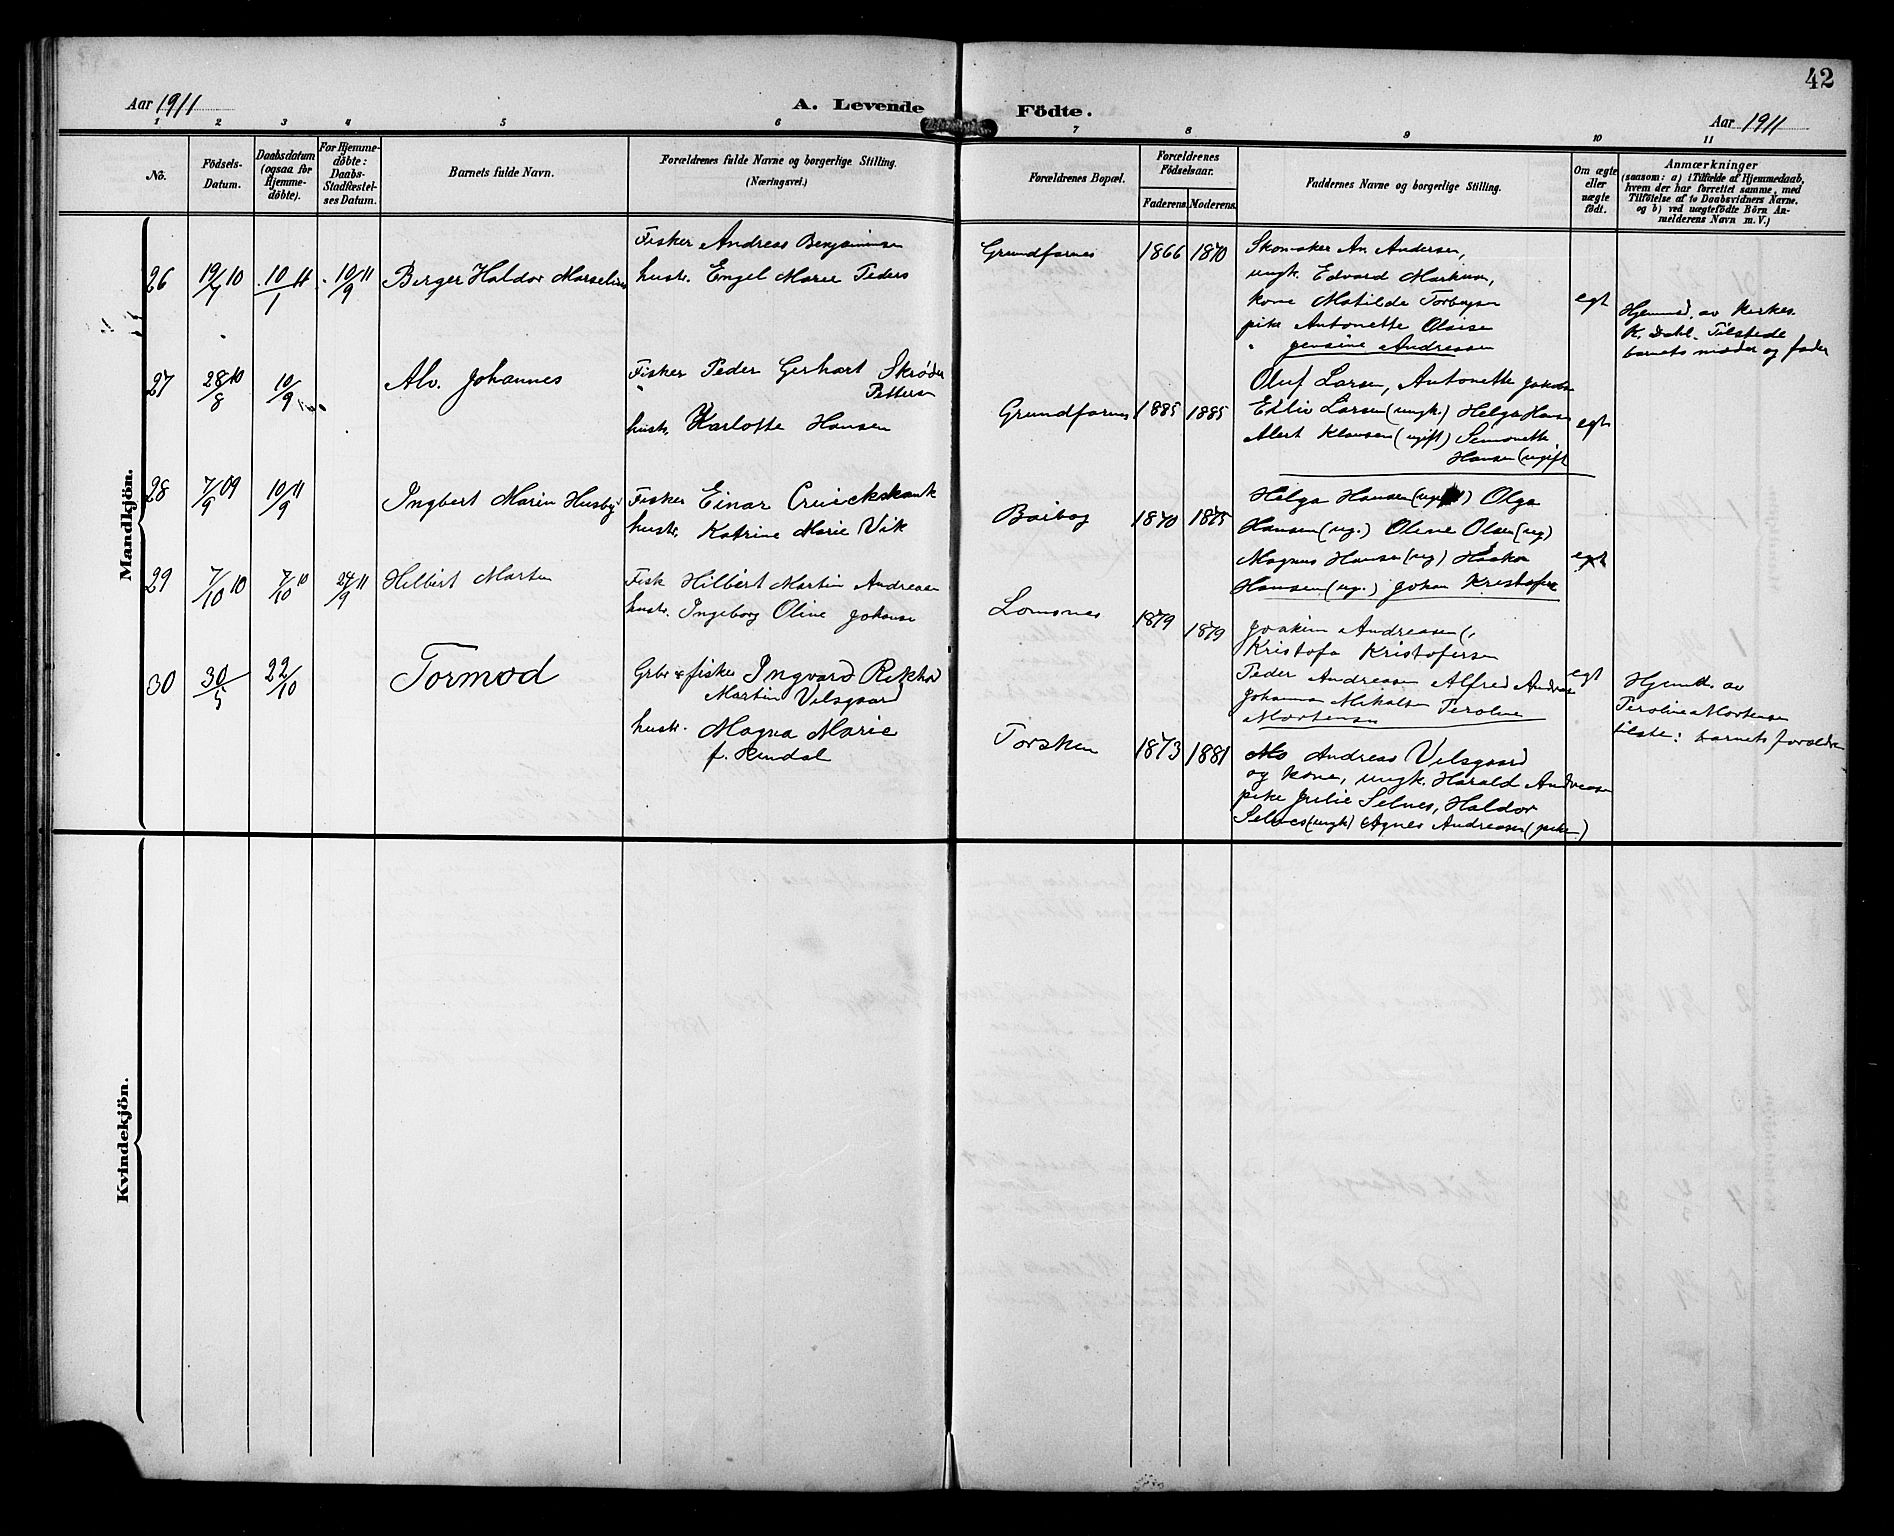 42
Aar 1911
A. Levende Födte.
Aar 1911
1 2 3 4 5 6 7 8 9 10 11
No.
Födsels-
Datum.
Daabsdatum
(ogsaa for
Hjemme-
döbte).
For Hjemme-
döbte:
Daabs-
Stadfæstel-
ses Datum.
Barnets fulde Navn.
Forældrenes fulde Navne og borgerlige Stilling.
(Næringsvei.)
Forældrenes Bopæl.
Forældrenes
Födselsaar.
Faderens. Moderens.
Faddernes Navne og borgerlige Stilling.
Om ægte
eller
uægte
födt.
Anmærkninger
(saasom: a) i Tilfælde af Hjemmedaab,
hvem der har forrettet samme, med
Tilföielse af to Daabsvidners Navne.
og b) ved uægtefödte Börn An-
melderens Navn m. V.)
Mandkjön.
26 19/7 10 10/1 11 10/9 11 Berger Haldor Marselius
Fisker Andreas Benjaminsen
hustr. Engel Marie Peders
Grundfarnes 1866 1870
Skomaker An. Andersen,
ungk. Edvard Markuss,
kone Matilde Torbergsen
pike Antonette Olsise
" Jensine Andreassen
egt
Hjemmed. av Kirkes.
K. Dahl. Tilstede
barnets moder og fader
27 28/8 10 10/9 Alv. Johannes
Fisker Peder Gerhart Skrøder
Pettersen
hustr. Karlotte Hansen
Grundfarnes 1885 1885
Oluf Larsen, Antonette
Edliv Larsen (ungk.) Helga Hans
Alert Klausen (ugift) Semonette
Hansen (ugift
egt
28 7/9 09 10/9 11 Ingbert Marin Husby
Fisker Einar Cruickshank
hustr. Katrine Marie Vik
Boibog 1870 1875
Helga Hansen (ugift) Olga
Hansen (ug.) Oline Olsen (ug)
Magnus Hansen (ug) Haakon
Hansen (ug.) Johan Kristofers
egt
29 7/10 10 7/10 10 24/9 11 Hilbert Martin
Fisk Hilbert Martin Andreasen
hustr. Ingeborg Oline Johanse
Lomsnes 1879 1879
Joakim Andreassen (,
Kristofa Kristofersen
Peder Andreasen Alfred Andreas
Johanna Mikalsen Peroline
Mortensen
egt
Hjemd. av
Peroline Mortensen
tilste: barnets forældre
30 30/5 22/10 Tormod
Grbr & fisker Ingvard Rikhard
Martin Vilsgaard
hustr. Magna Marie
f. Hendal
Torsken 1873 1881
Andreas Vilsgaard
og kone, ungk. Harald Andreasen
pike Julie Selnes, Haldor
Selnes (ungk) Agnes Andreasen (pike)
Kvindekjön.